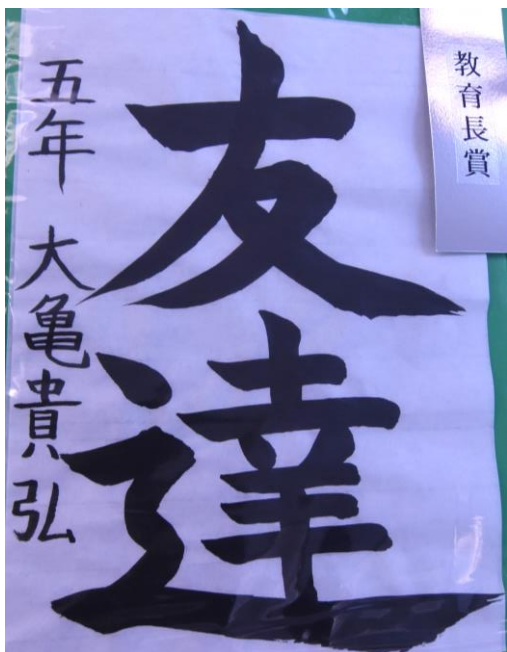 教育長賞
友達
五年 大亀貴弘